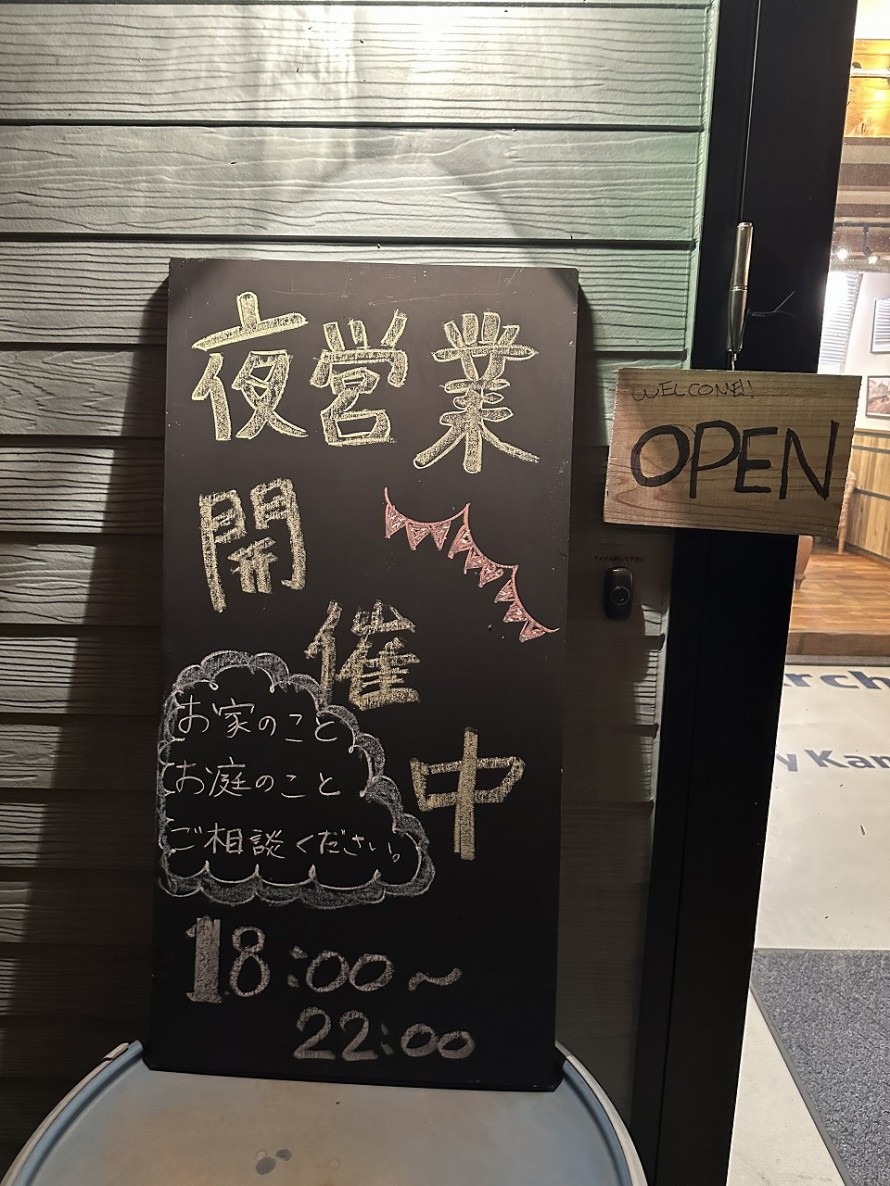 夜営業
開
催
中
お家のこと
お庭のこと
ご相談ください。
18:00～
22:00
WELCOME!!
OPEN